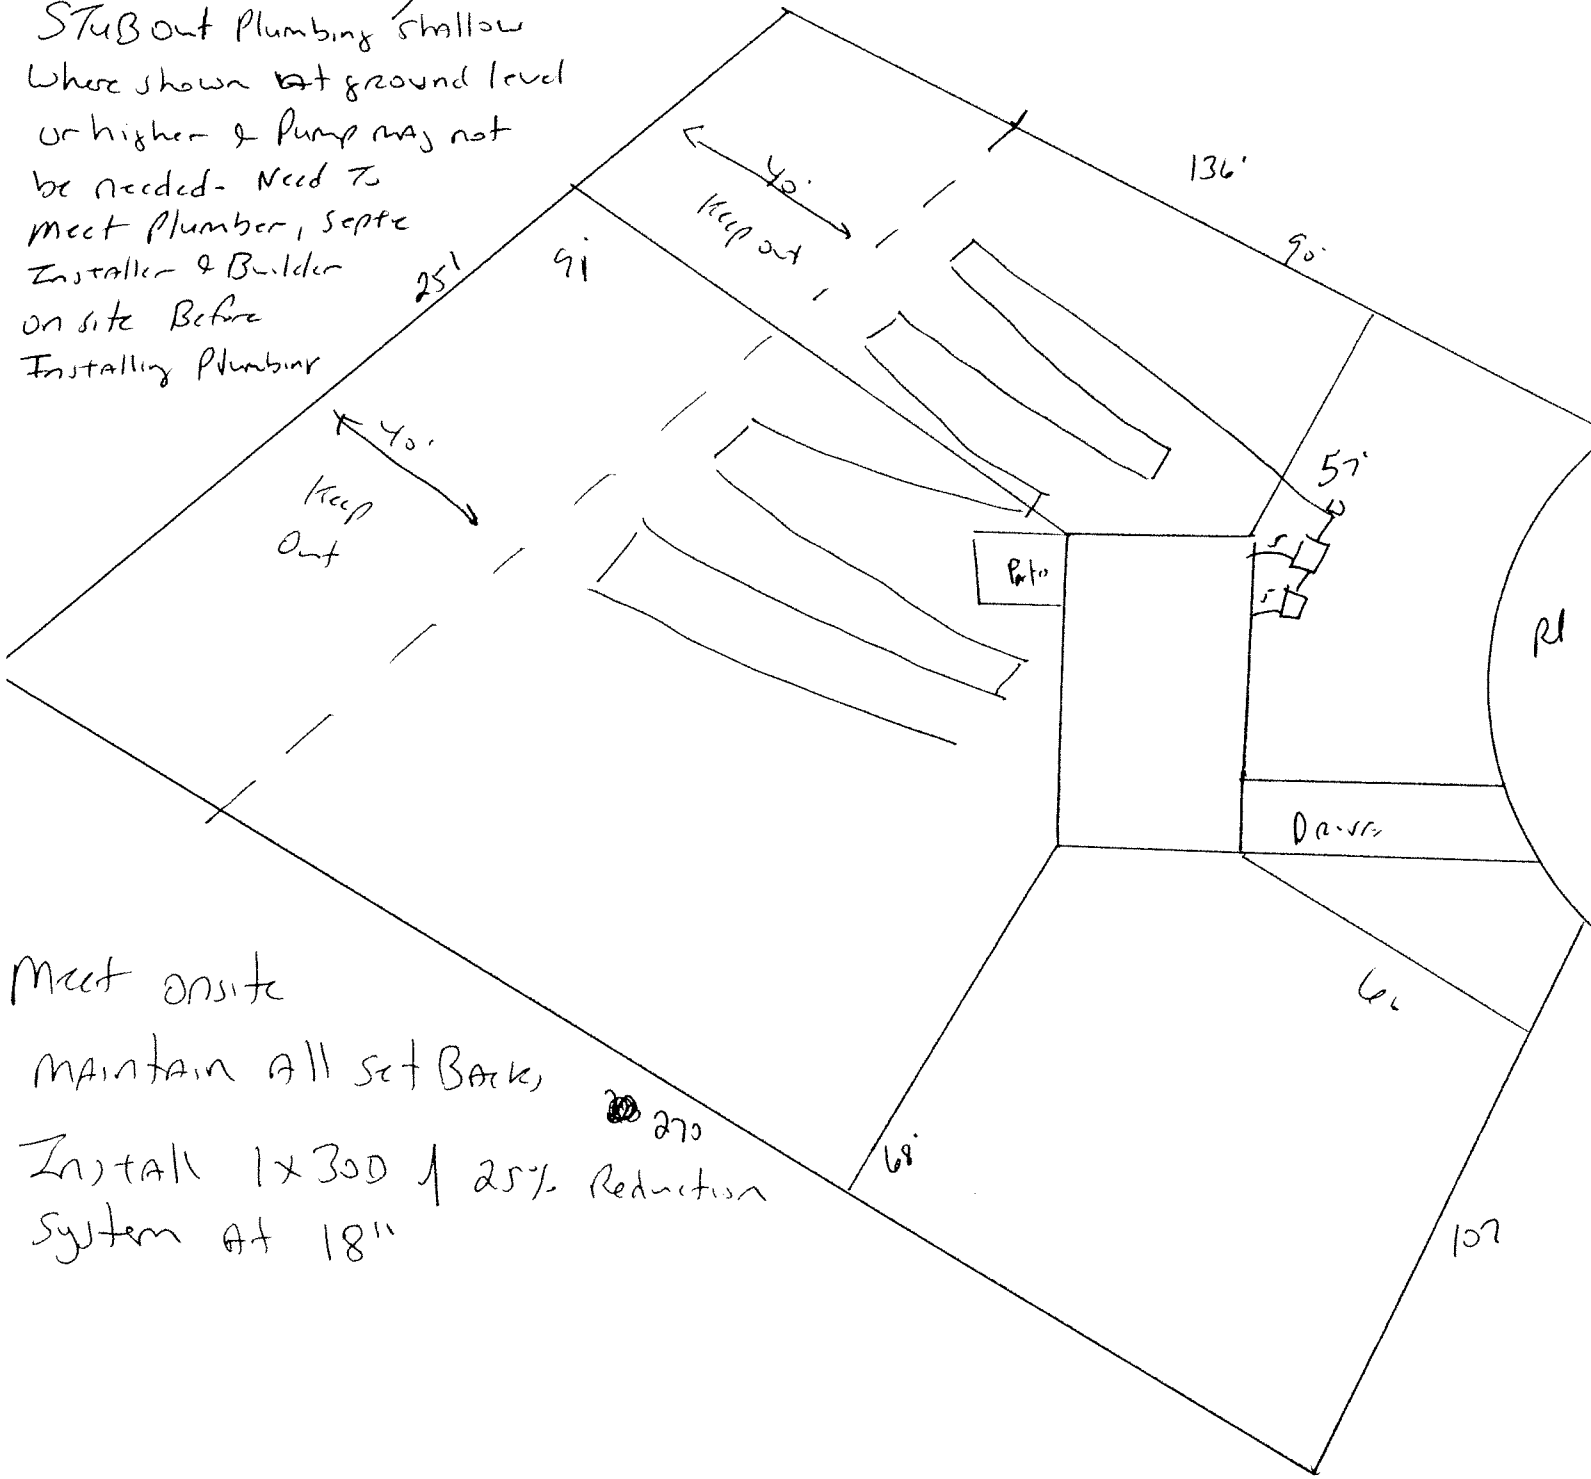 STUBOut Plumbing Shallow
Where shown At ground level
or higher & Pump may not
be needed- Need To
Meet Plumber, Septc
Installer & Builder
on site Before
Installing Plumbing
136'
40'
Keep out
90'
25'
91
57'
40'
Keep
Out
5
Patio
5
Rd
Drive
Meet onsite
MAintAin All SetBAcks
270
68'
107
InstAll 1x300 of 25% Reduction
System At 18"